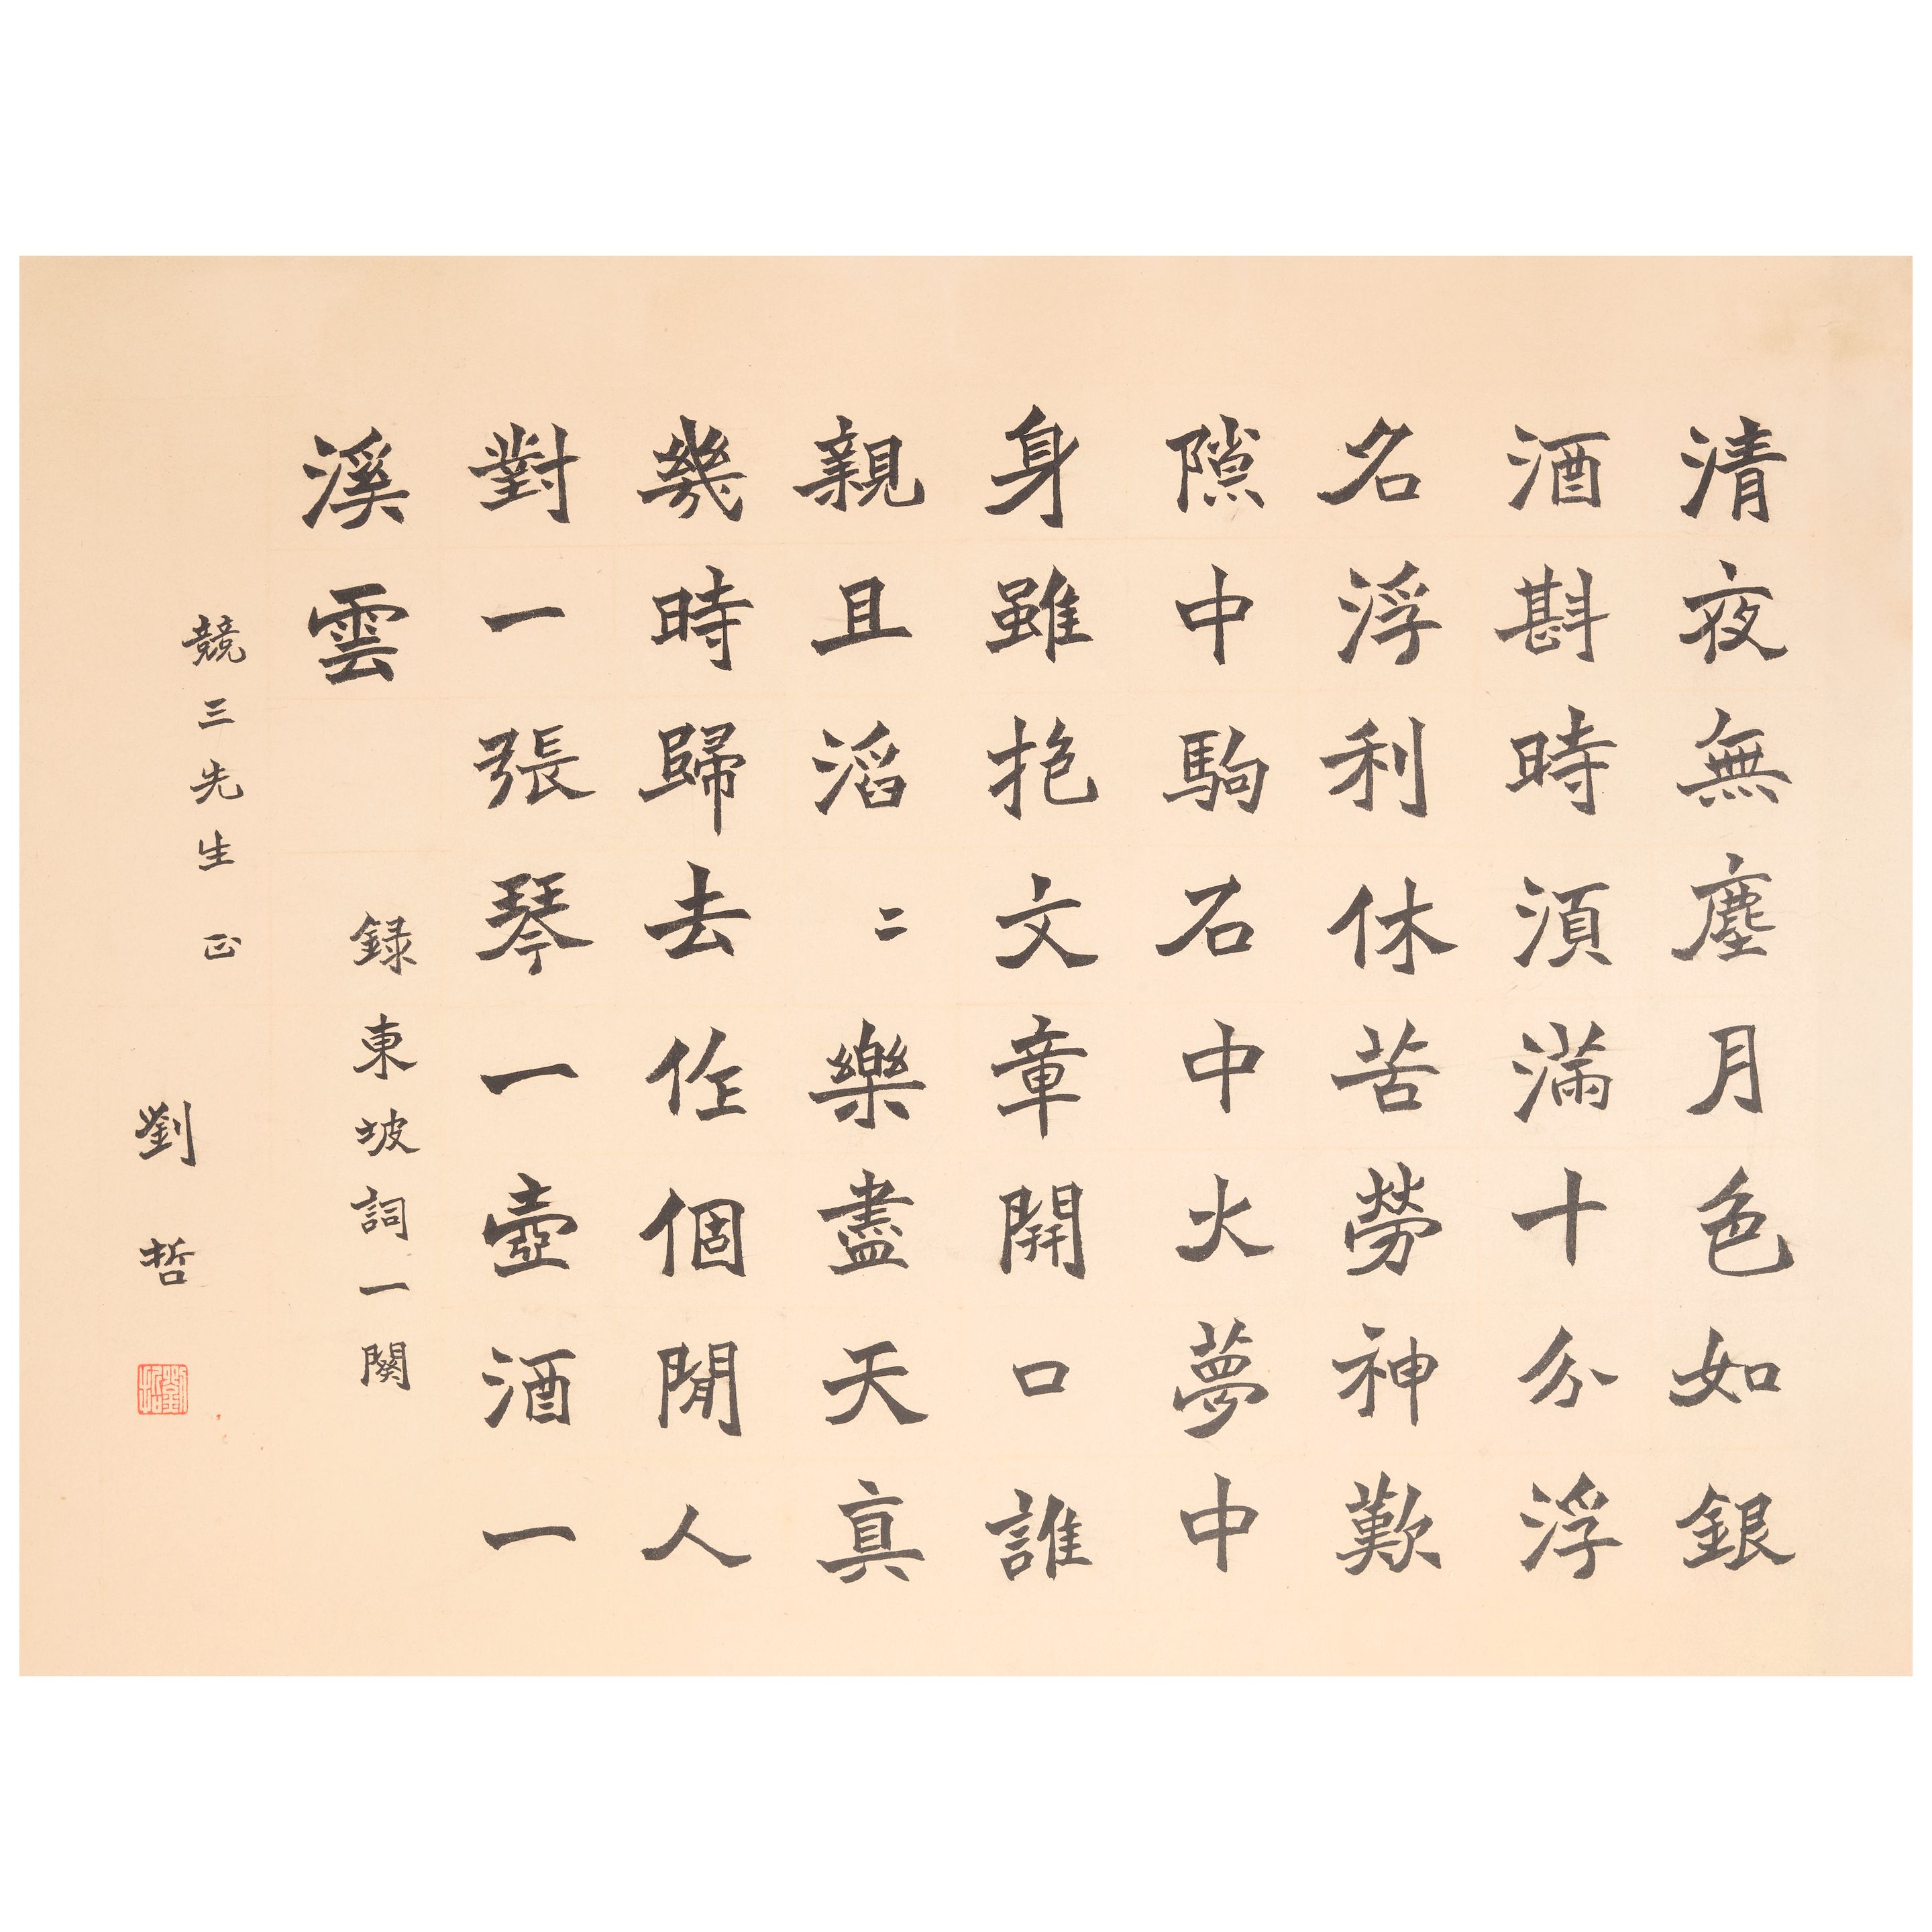 清夜無塵月色如銀
酒斟時須滿十分浮
名浮利休苦勞神歎
隙中駒石中火夢中
身雖抱文章開口誰
親且滔二樂盡天真
幾時歸去作個閒人
對一張琴一壺酒一
溪雲
録東坡詞一闋
競三先生正
劉哲
劉哲